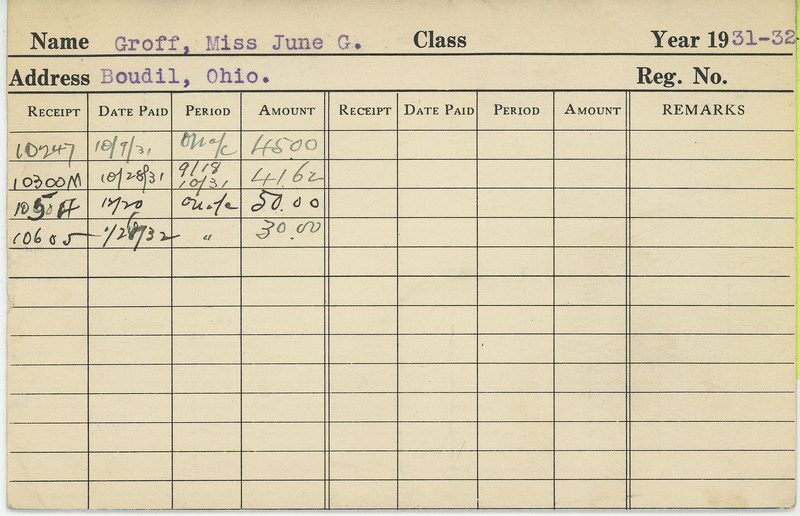 Name Groff, Miss June G. Class Year 1931-32
Address Boudil, Ohio. Reg. No.
RECEIPT DATE PAID PERIOD AMOUNT RECEIPT DATE PAID PERIOD AMOUNT REMARKS
10247 10/9/31 On a/c 45.00
10300M 10/28/31 9/18 10/31 41.62
12/20 On a/c 50.00
10605 1/28/32 " 30.00